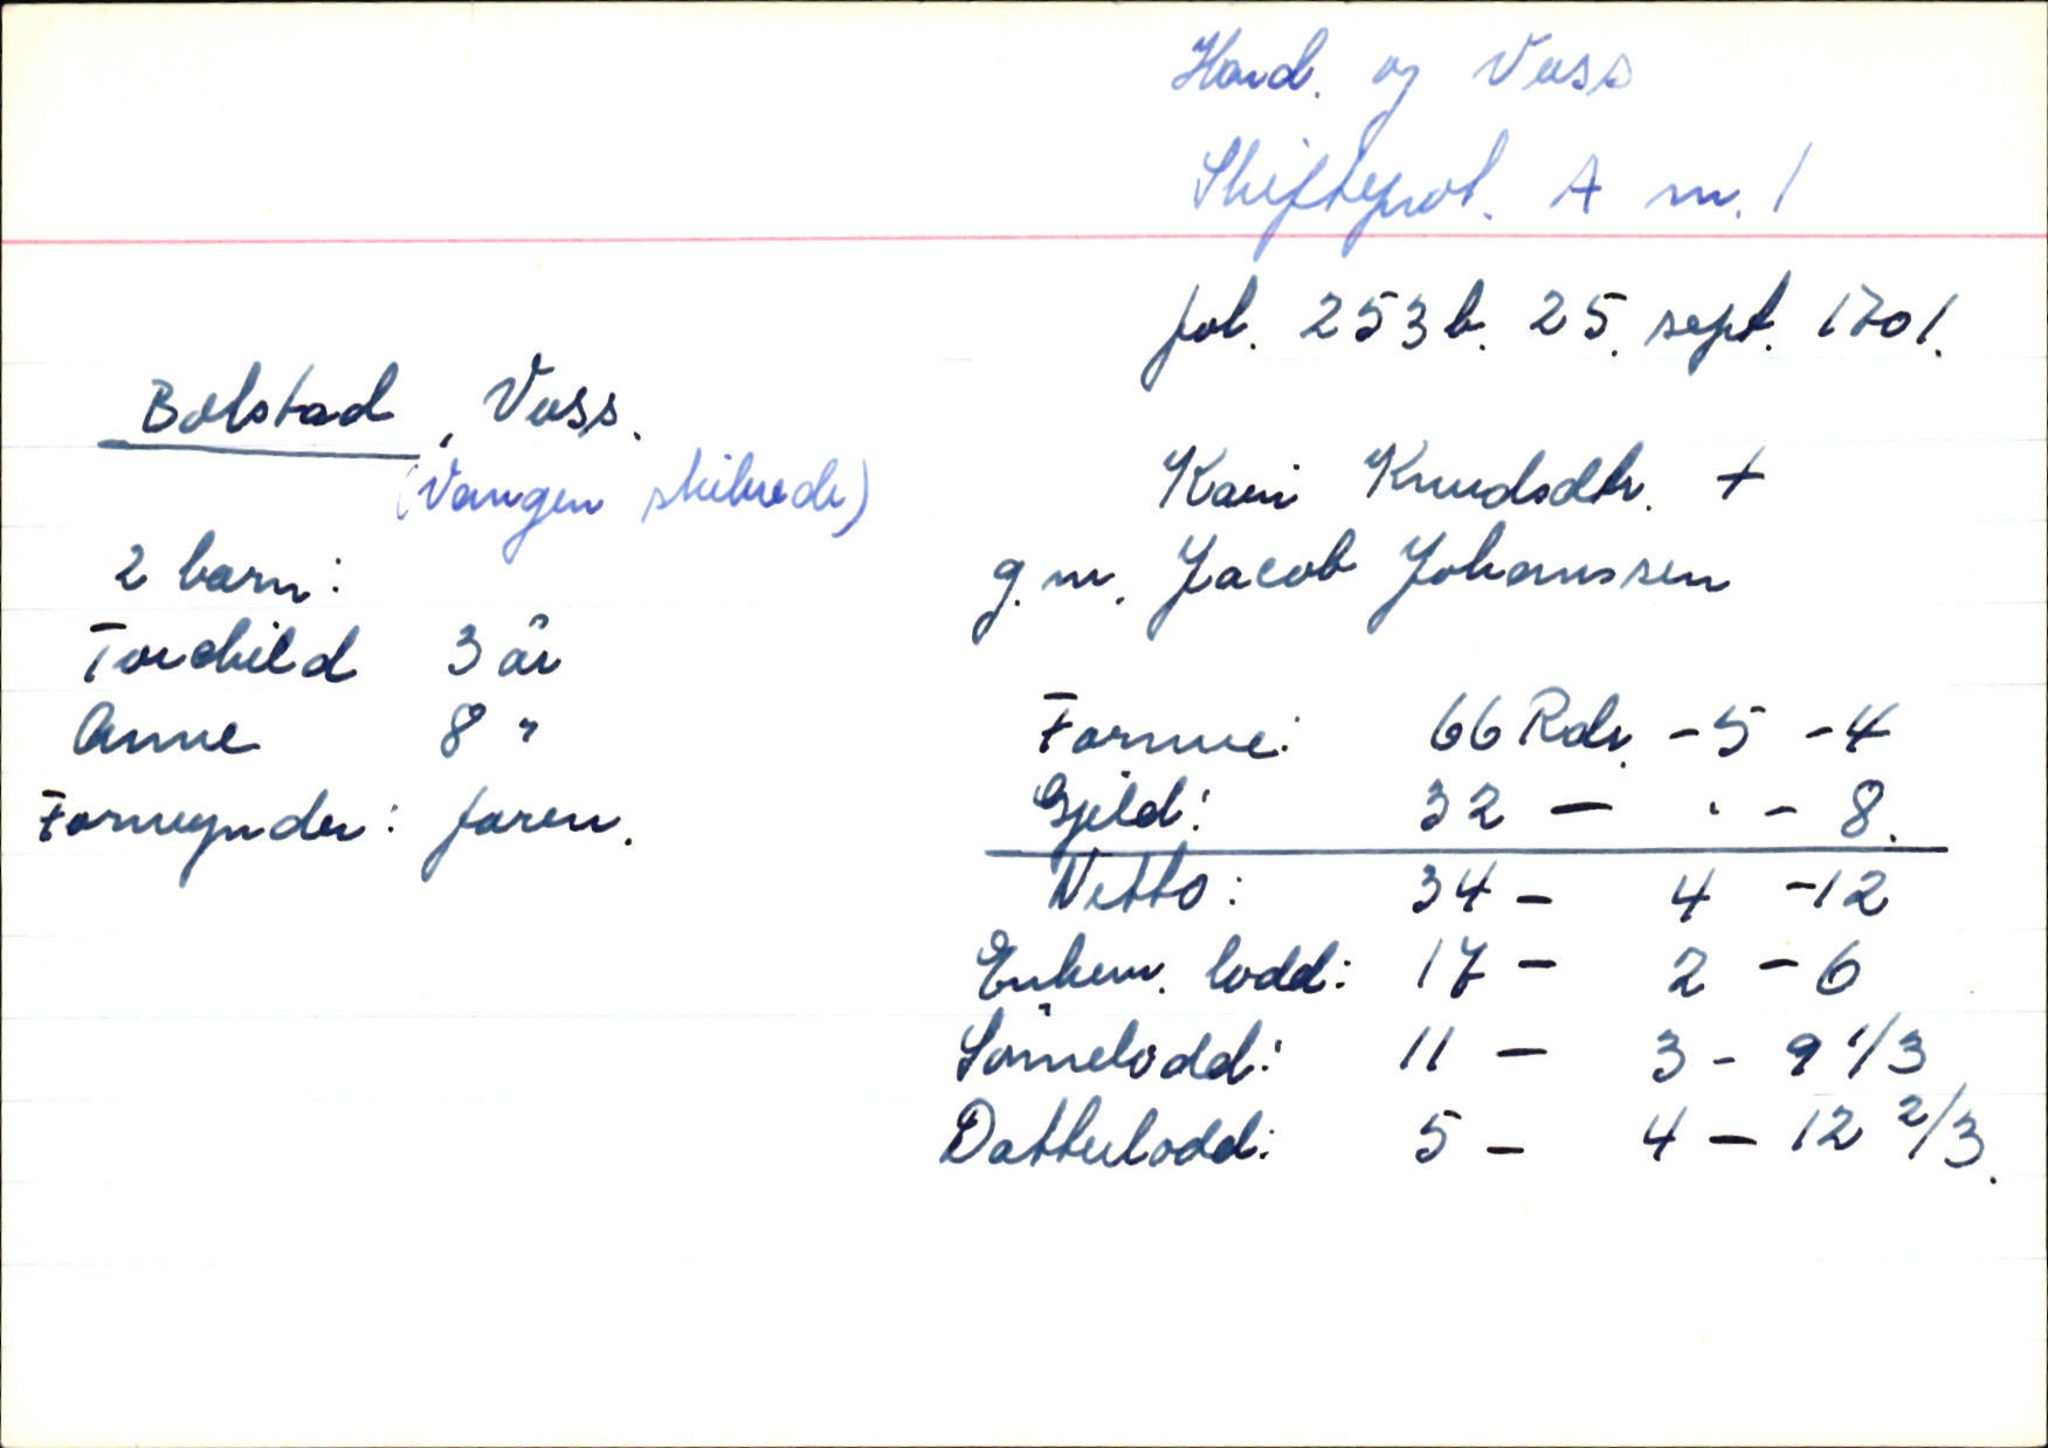 Hard. og Voss
Skifteprot. A nr. 1
fol. 253 b. 25. sept. 1701.
Bolstad, Voss.
(Vangen skibrede)
Kari Knudsdtr. +
g. m. Jacob Johanssen
2 barn:
Torchild 3 år
Anne 8 "
Formynder: faren.
Formue: 66 Rdr. - 5 - 4
Gjeld: 32 - . - 8.
Netto: 34 - 4 - 12
Enkem. lodd: 17 - 2 - 6
Sønnelodd: 11 - 3 - 9 1/3
Datterlodd: 5 - 4 - 12 2/3.